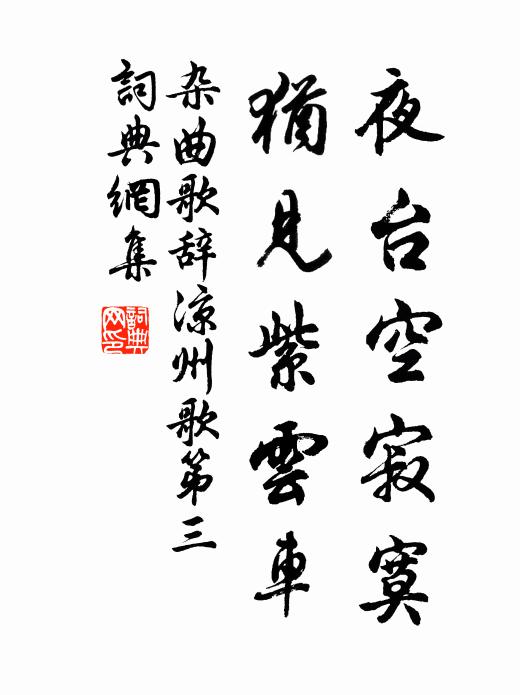 夜台空寂寞
猶見紫雲車
杂曲歌辞凉州歌第三
詞典網集
詞典网印